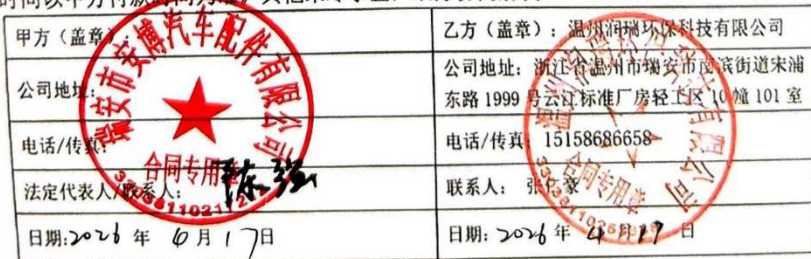 甲方（盖章）
乙方（盖章）：温州润瑞环保科技有限公司
公司地址：
公司地址：浙江省温州市瑞安市 滨街道宋浦
东路 1999 号云江标准厂房轻工区 10 幢 101 室
电话/传真：
电话/传真：15158686658
法定代表人/联系人：
联系人：张 豪
日期:2026 年 6 月 17日
日期：2026 年 4 月 17 日
瑞安市安博汽车配件有限公司
合同专用章
有限公司
合同专用章